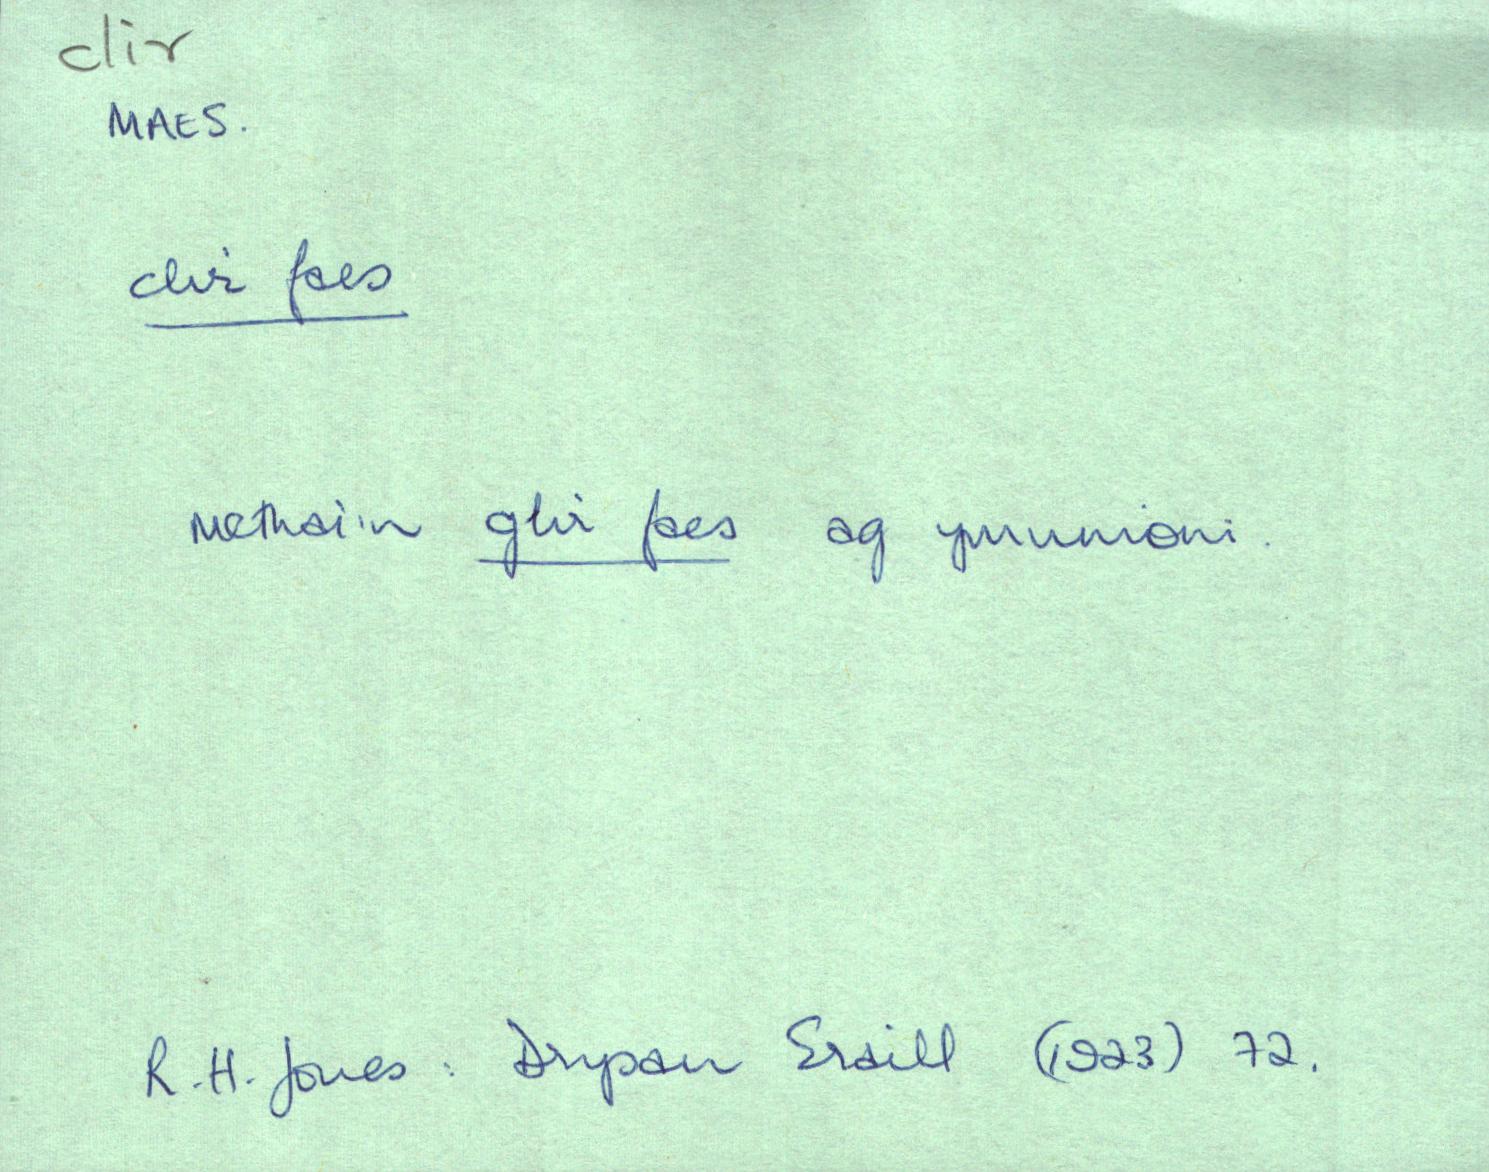 clir
MAES.
clir faes
methai'n glir faes ag ymunioni.
R. H. Jones : Drysau Eraill (1923) 72.